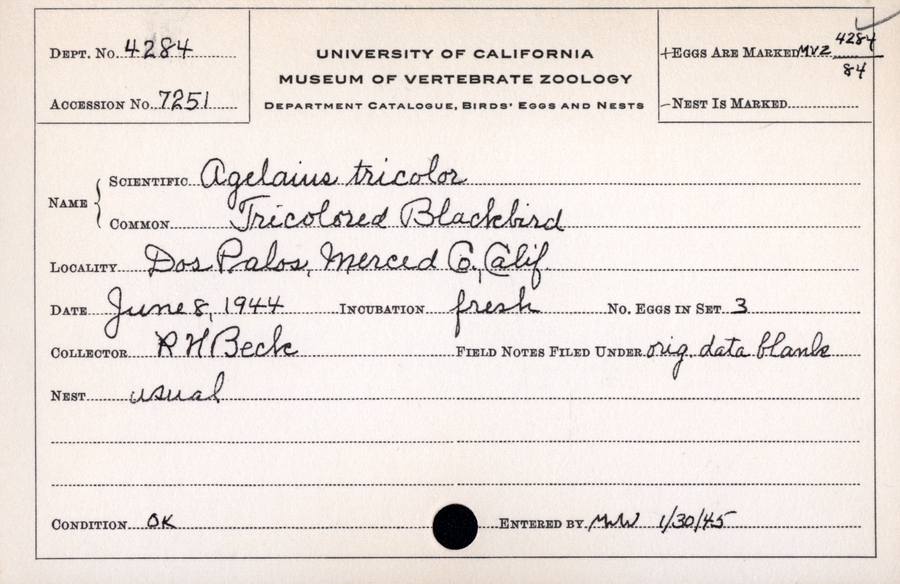 DEPT. No. 4284
ACCESSION No. 7251
UNIVERSITY OF CALIFORNIA
MUSEUM OF VERTEBRATE ZOOLOGY
DEPARTMENT CATALOGUE, BIRDS' EGGS AND NESTS
+EGGS ARE MARKED MVZ 4284/84
-NEST IS MARKED
NAME
SCIENTIFIC Agelaius tricolor
COMMON Tricolored Blackbird
LOCALITY Dos Palos, Merced Co., Calif.
DATE June 8, 1944 INCUBATION fresh No. EGGS IN SET 3
COLLECTOR R H Beck FIELD NOTES FILED UNDER orig. data blank
NEST usual
CONDITION OK ENTERED BY MWW 1/30/45